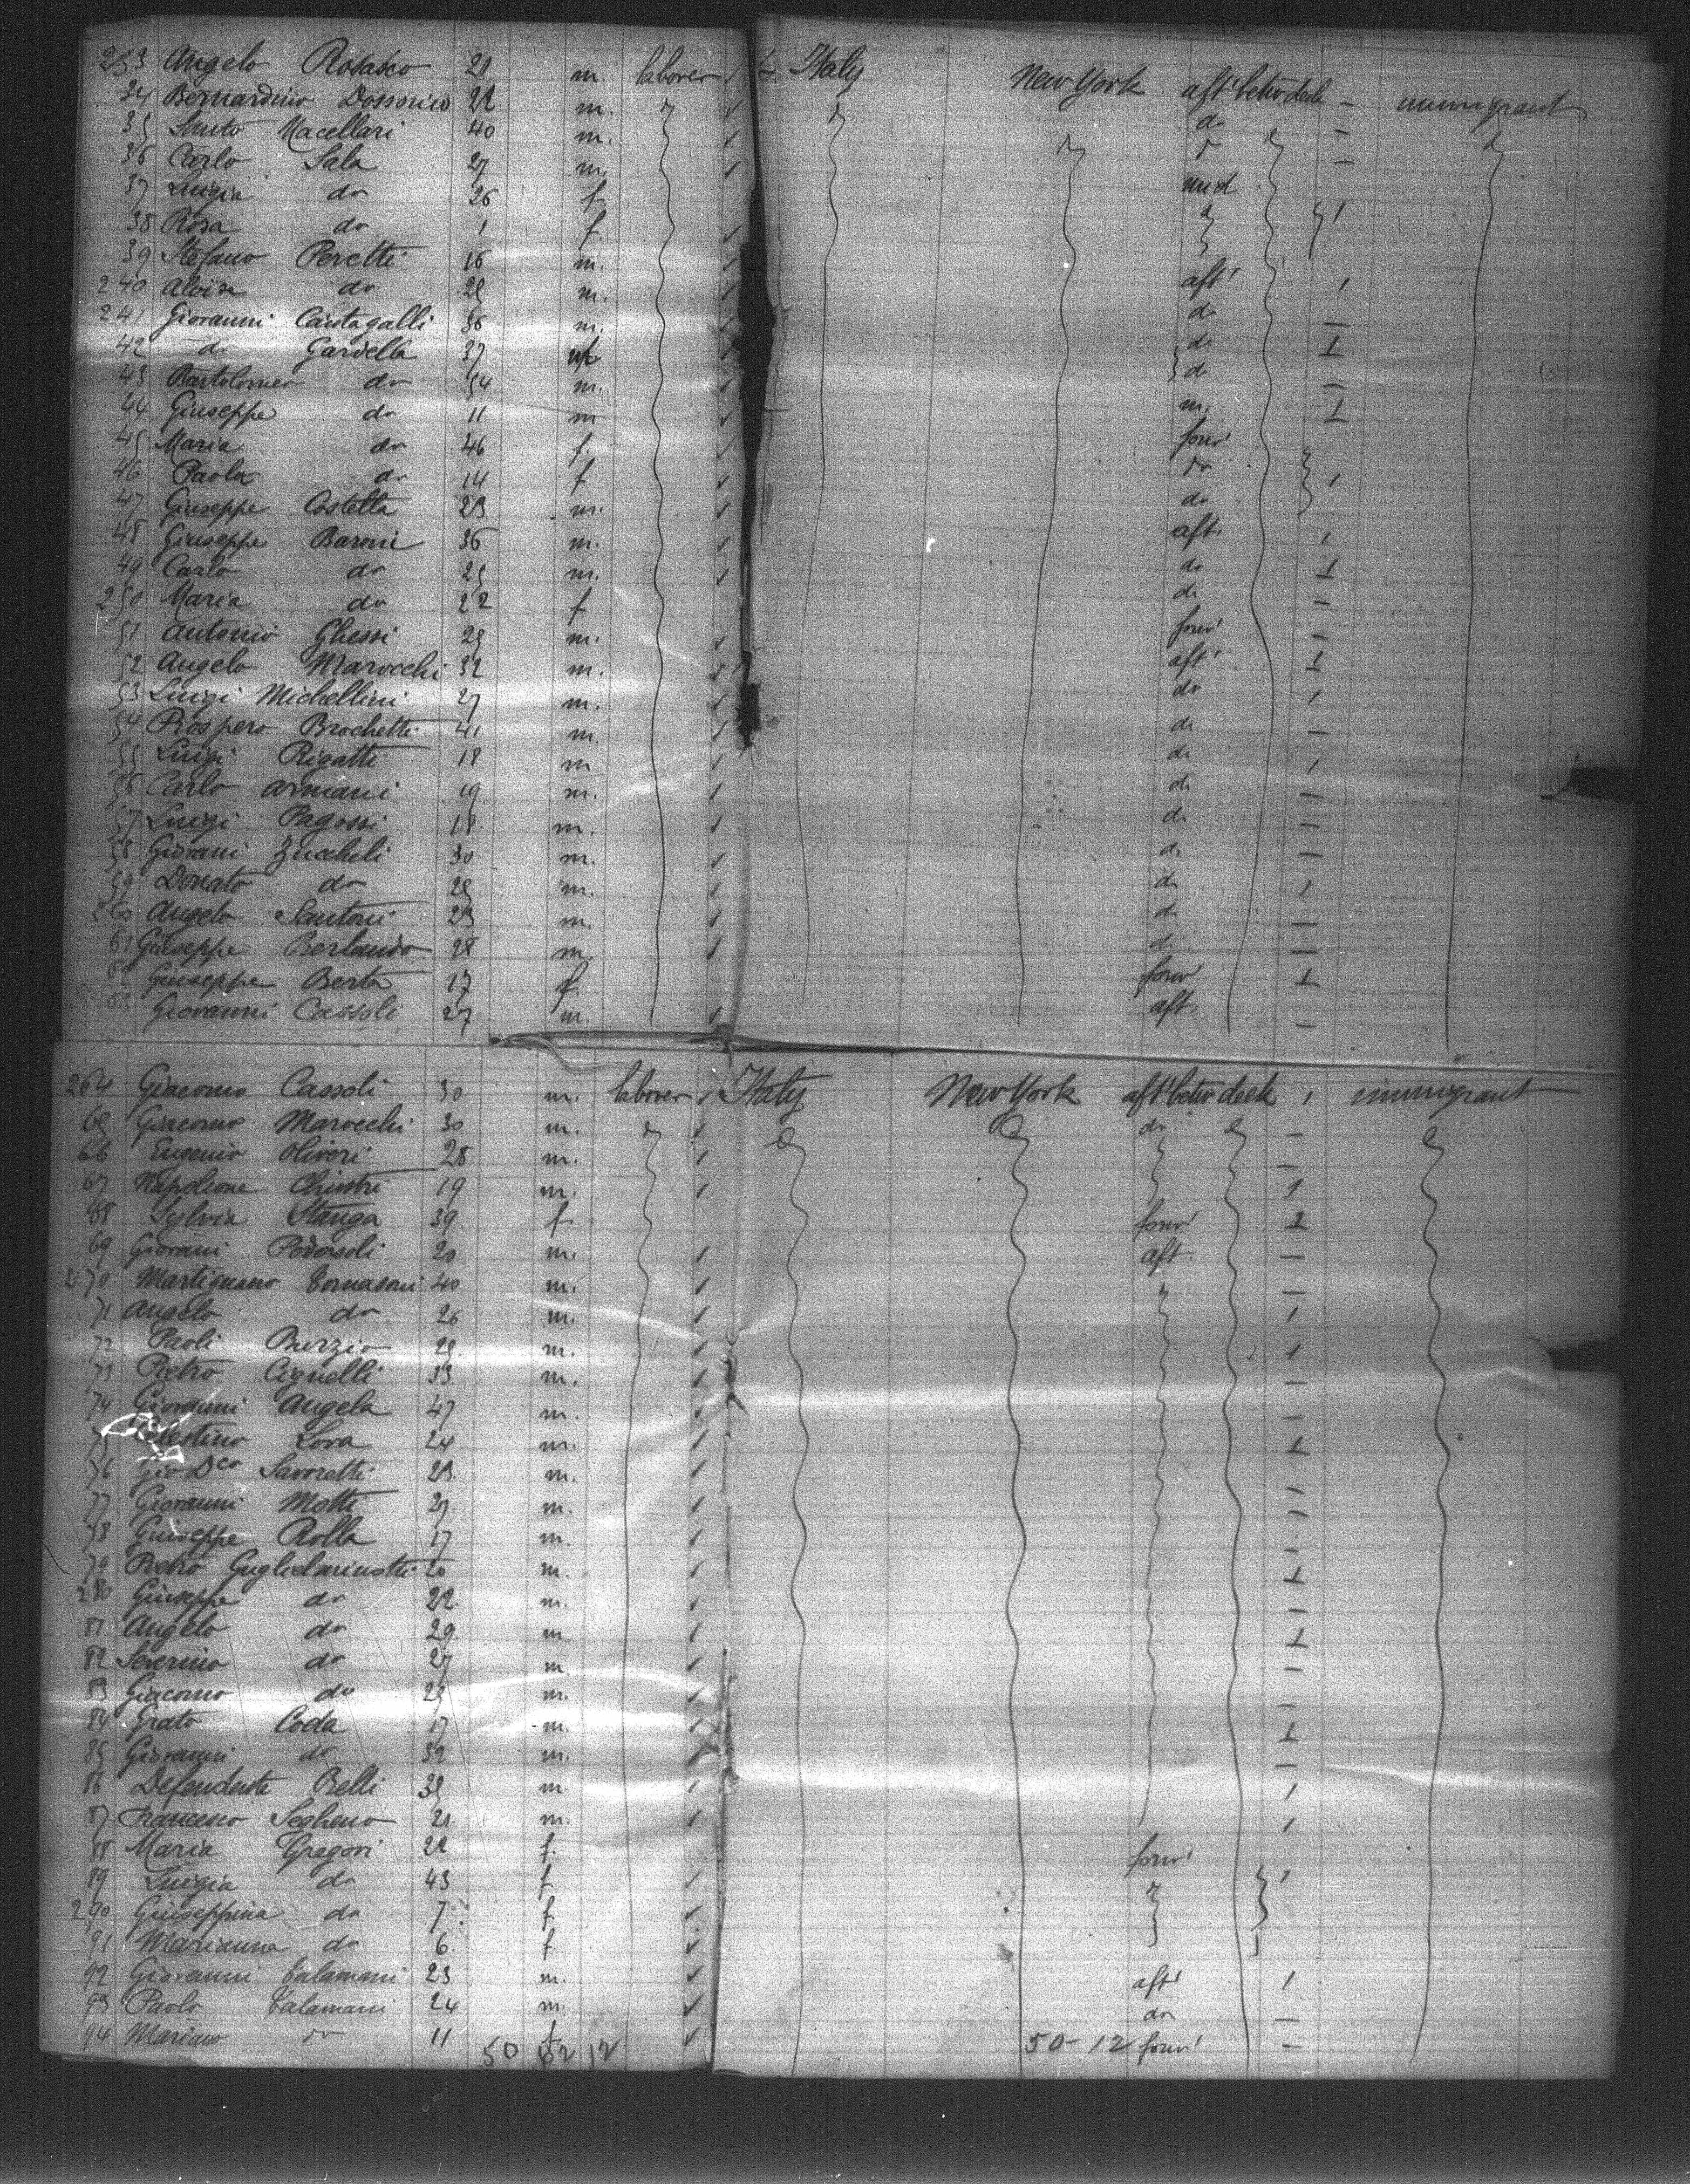 233 Angelo Rosasco 21 m. laborer Italy New York aft' betw deck - immigrant
34 Bernardino 22 m. do -
35 Santo Macellari 40 m. do -
36 Carlo Sala 27 m. mid
37 Luigia do 26 f.
38 Rosa do 1 f. 1
39 Stefano Peretti 16 m. aft' 1
240 Aloise do 25 m. do -
241 Giovanni Cantagalli 36 m. do 1
42 do Gardella 37 do -
43 Bartolomeo do 54 m. m. 1
44 Giuseppe do 11 m forw'
45 Maria do 46 f. do 1
46 Paola do 14 f do
47 Giuseppe Costella 23 m. aft. 1
48 Giuseppe Baroni 36 m. do 1
49 Carlo do 25 m. do -
250 Maria do 22 f forw' -
51 Antonio Ghessi 25 m. aft' 1
52 Angelo Marocchi 32 m. do 1
53 Luigi Michellini 27 m. do -
54 Prospero Brochetti 41 m. do 1
55 Luigi Rigatti 18 m do -
56 Carlo Armani 19 m. do -
57 Luigi Pagossi 18 m. do -
58 Giovani Zucheli 30 m. do 1
59 Donato do 25 m. do -
260 Angelo Santoni 23 m. do -
61 Giuseppe Berlando 28 m. forw' 1
62 Giuseppe Berta 17 f aft. -
63 Giovanni Cassoli 27 m.
264 Giacomo Cassoli 30 m. laborer Italy New York aft' betw deck 1 immigrant
65 Giacomo Marocchi 30 m. do -
66 Eugenio Oliveri 28 m. -
67 Napoleone Chiostri 19 m. 1
68 Sylvia Stanga 39 f forw' 1
69 Giovani Pedersoli 20 m. aft. -
270 Martignano Tomasoni 40 m. -
71 Angelo do 26 m. 1
72 Paoli Burzio 28 m. 1
73 Pietro Cignelli 33 m. -
74 Giovanni Angela 47 m. -
75 Celestino Lova 24 m. 1
76 Gio Dco Savoretti 23 m. -
77 Giovanni Motti 27 m. -
78 Giuseppe Rolla 17 m. -
79 Pietro Guglielminotti 20 m. 1
280 Giuseppe do 22 m. -
81 Angelo do 29 m. 1
82 Severino do 27 m -
83 Giacomo do 25 m. -
84 Grato Coda 17 m. 1
85 Giovanni do 32 m. -
86 Defendente Belli 35 m 1
87 Francesco Segheno 21 m. 1
88 Maria Gregori 22 f. forw'
89 Luigia do 43 f 1
290 Giuseppina do 7 f
91 Marianna do 6 f
92 Giovanni Calamani 23 m. aft' 1
93 Paolo Calamani 24 m. do -
94 Mariano do 11 f 50-12 forw' -
50 12